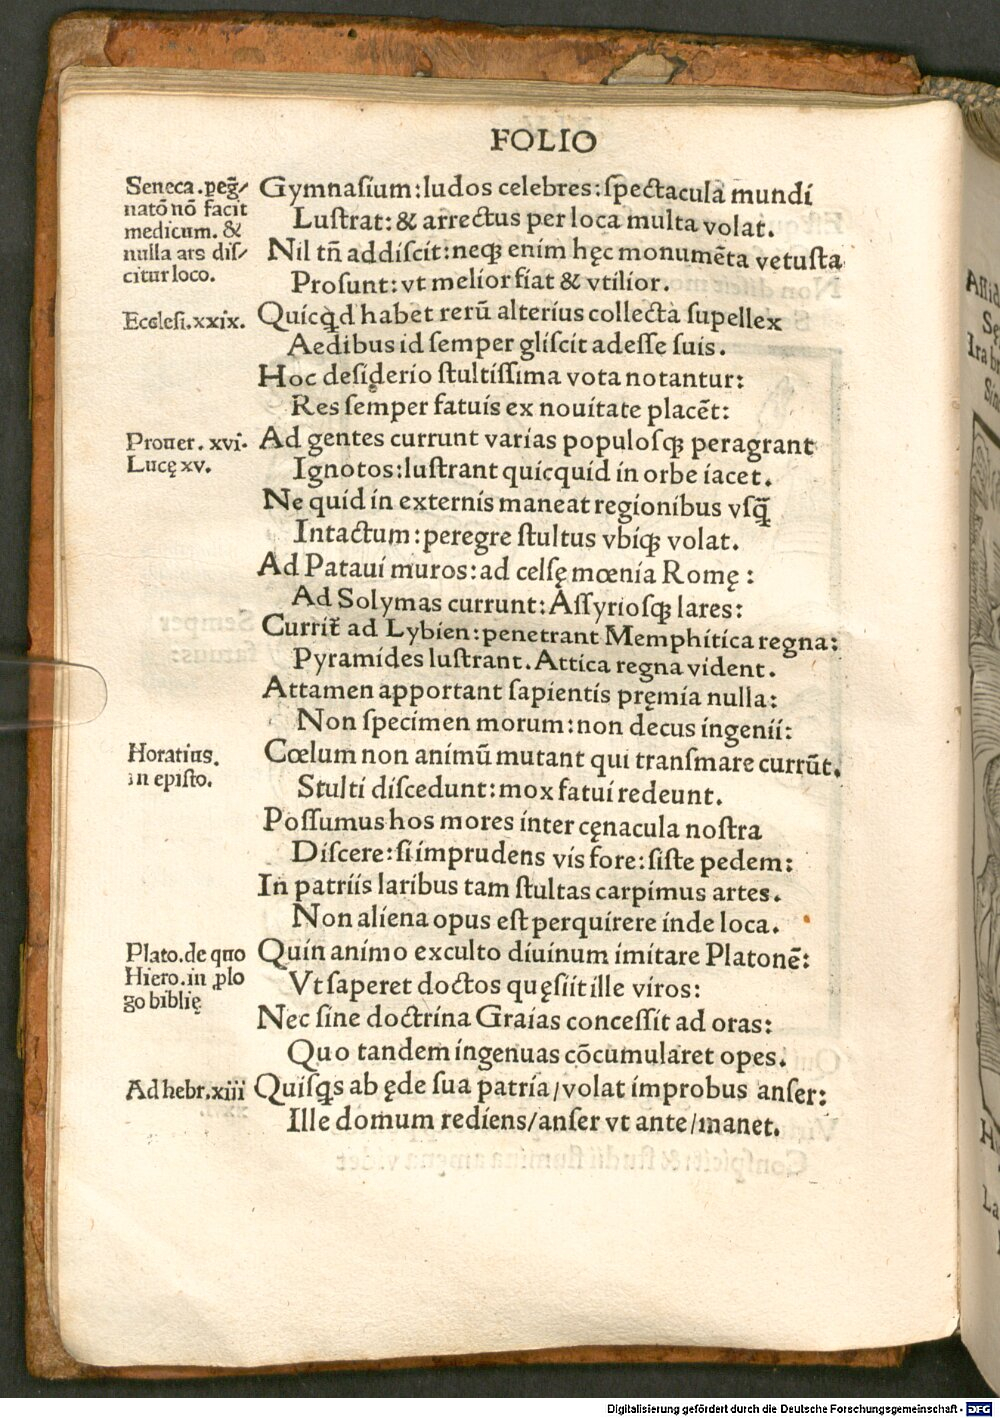 FOLIO
Seneca.peg̃/
natōnō facit
medicum. &
nulla ars diſ/
citur loco.
Gymnaſium:ludos celebres:ſpectacula mundi
Luſtrat:& arrectus per loca multa volat.
Nil tñ addiſcit:neqꝫ enim hęc monumēta vetuſta
Proſunt:vt melior fiat & vtilior.
Eccleſi.xxix.
Quicq̃d habet rerū alterius collecta ſupellex
Aedibus id ſemper gliſcit adeſſe ſuis.
Hoc deſiderio ſtultiſſima vota notantur:
Res ſemper fatuis ex nouitate placēt:
Prouer. xvi.
Lucę xv.
Ad gentes currunt varias populoſqꝫ peragrant
Ignotos:luſtrant quicquid in orbe iacet.
Ne quid in externis maneat regionibus vſq̃
Intactum:peregre ſtultus vbiqꝫ volat.
Ad Pataui muros:ad celſę mœnia Romę:
Ad Solymas currunt:Aſſyrioſqꝫ lares:
Currūt ad Lybien:penetrant Memphitica regna:
Pyramides luſtrant.Attica regna vident.
Attamen apportant ſapientis pręmia nulla:
Non ſpecimen morum:non decus ingenii:
Horatius.
in epiſto.
Cœlum non animū mutant qui tranſmare currūt.
Stulti diſcedunt:mox fatui redeunt.
Poſſumus hos mores inter cęnacula noſtra
Diſcere:ſi imprudens vis fore:ſiſte pedem:
In patriis laribus tam ſtultas carpimus artes.
Non aliena opus eſt perquirere inde loca.
Plato.de quo
Hiero.in ꝓlo
go biblię
Quin animo exculto diuinum imitare Platonē:
Vt ſaperet doctos quęſiit ille viros:
Nec ſine doctrina Graias conceſſit ad oras:
Quo tandem ingenuas cōcumularet opes.
Ad hebr.xiii
Quiſq̃s ab ęde ſua patria/volat improbus anſer:
Ille domum rediens/anſer vt ante/manet.
Digitalisierung gefördert durch die Deutsche Forschungsgemeinschaft - DFG